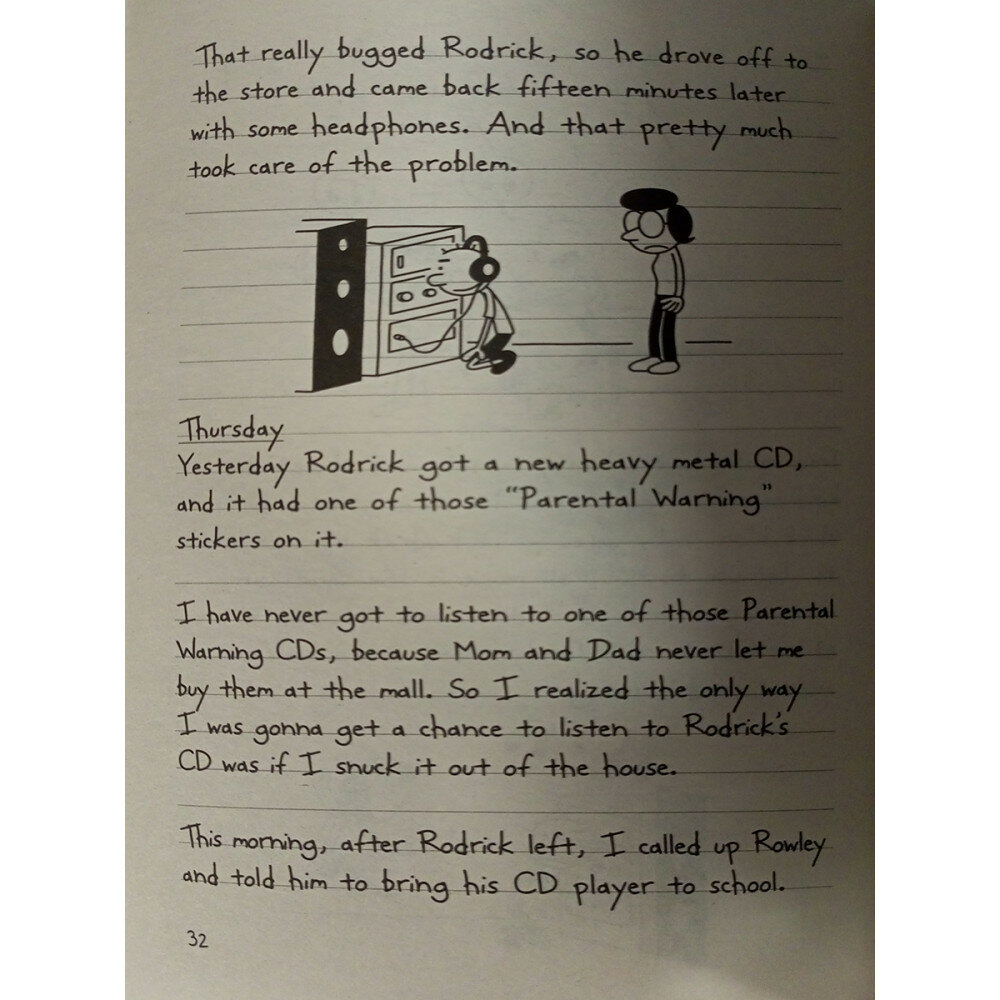 That really bugged Rodrick, so he drove off to
the store and came back fifteen minutes later
with some headphones. And that pretty much
took care of the problem.
Thursday
Yesterday Rodrick got a new heavy metal CD,
and it had one of those “Parental Warning”
stickers on it.
I have never got to listen to one of those Parental
Warning CDs, because Mom and Dad never let me
buy them at the mall. So I realized the only way
I was gonna get a chance to listen to Rodrick's
CD was if I snuck it out of the house.
This morning, after Rodrick left, I called up Rowley
and told him to bring his CD player to school.
32